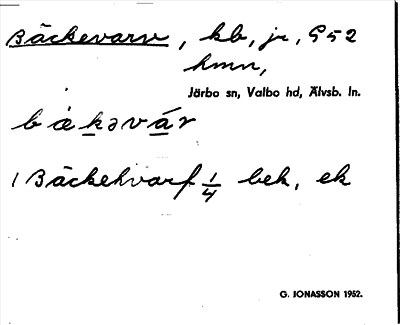 Bäckevarv, kb, jr, S 52
hmn,
Järbo sn, Valbo hd, Älvsb. ln.
bǽkəvár
1 Bäckehvarf 1/4 bek, ek
G. JONASSON 1952.